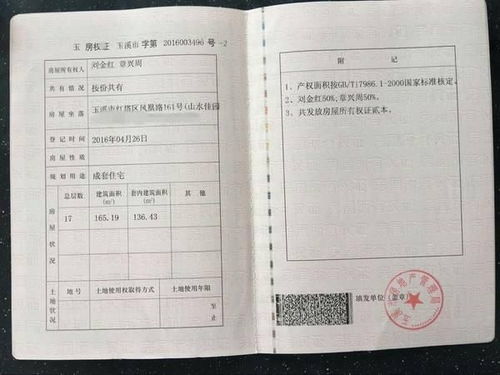 玉 房权证 玉溪市 字第 2016003496 号 -2
房屋所有权人 刘金红 章兴周
共有情况 按份共有
房屋坐落 玉溪市红塔区凤凰路161号(山水佳园
登记时间 2016年04月26日
房屋性质
规划用途 成套住宅
房屋状况 总层数 建筑面积(m²) 套内建筑面积(m²) 其他
17 165.19 136.43
土地状况 地号 土地使用权取得方式 土地使用年限
至
止
附记
1、产权面积按GB/T17986.1-2000国家标准核定。
2、刘金红50%,章兴周50%。
3、共发放房屋所有权证贰本。
填发单位(盖章)
房地产管理局